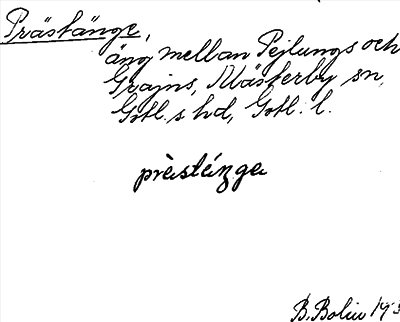 Prästänge,
äng mellan Pejlungs och
Grajns, Mästerby sn,
Gotl. s hd, Gotl. l.
prèsténga
B. Bolin 193